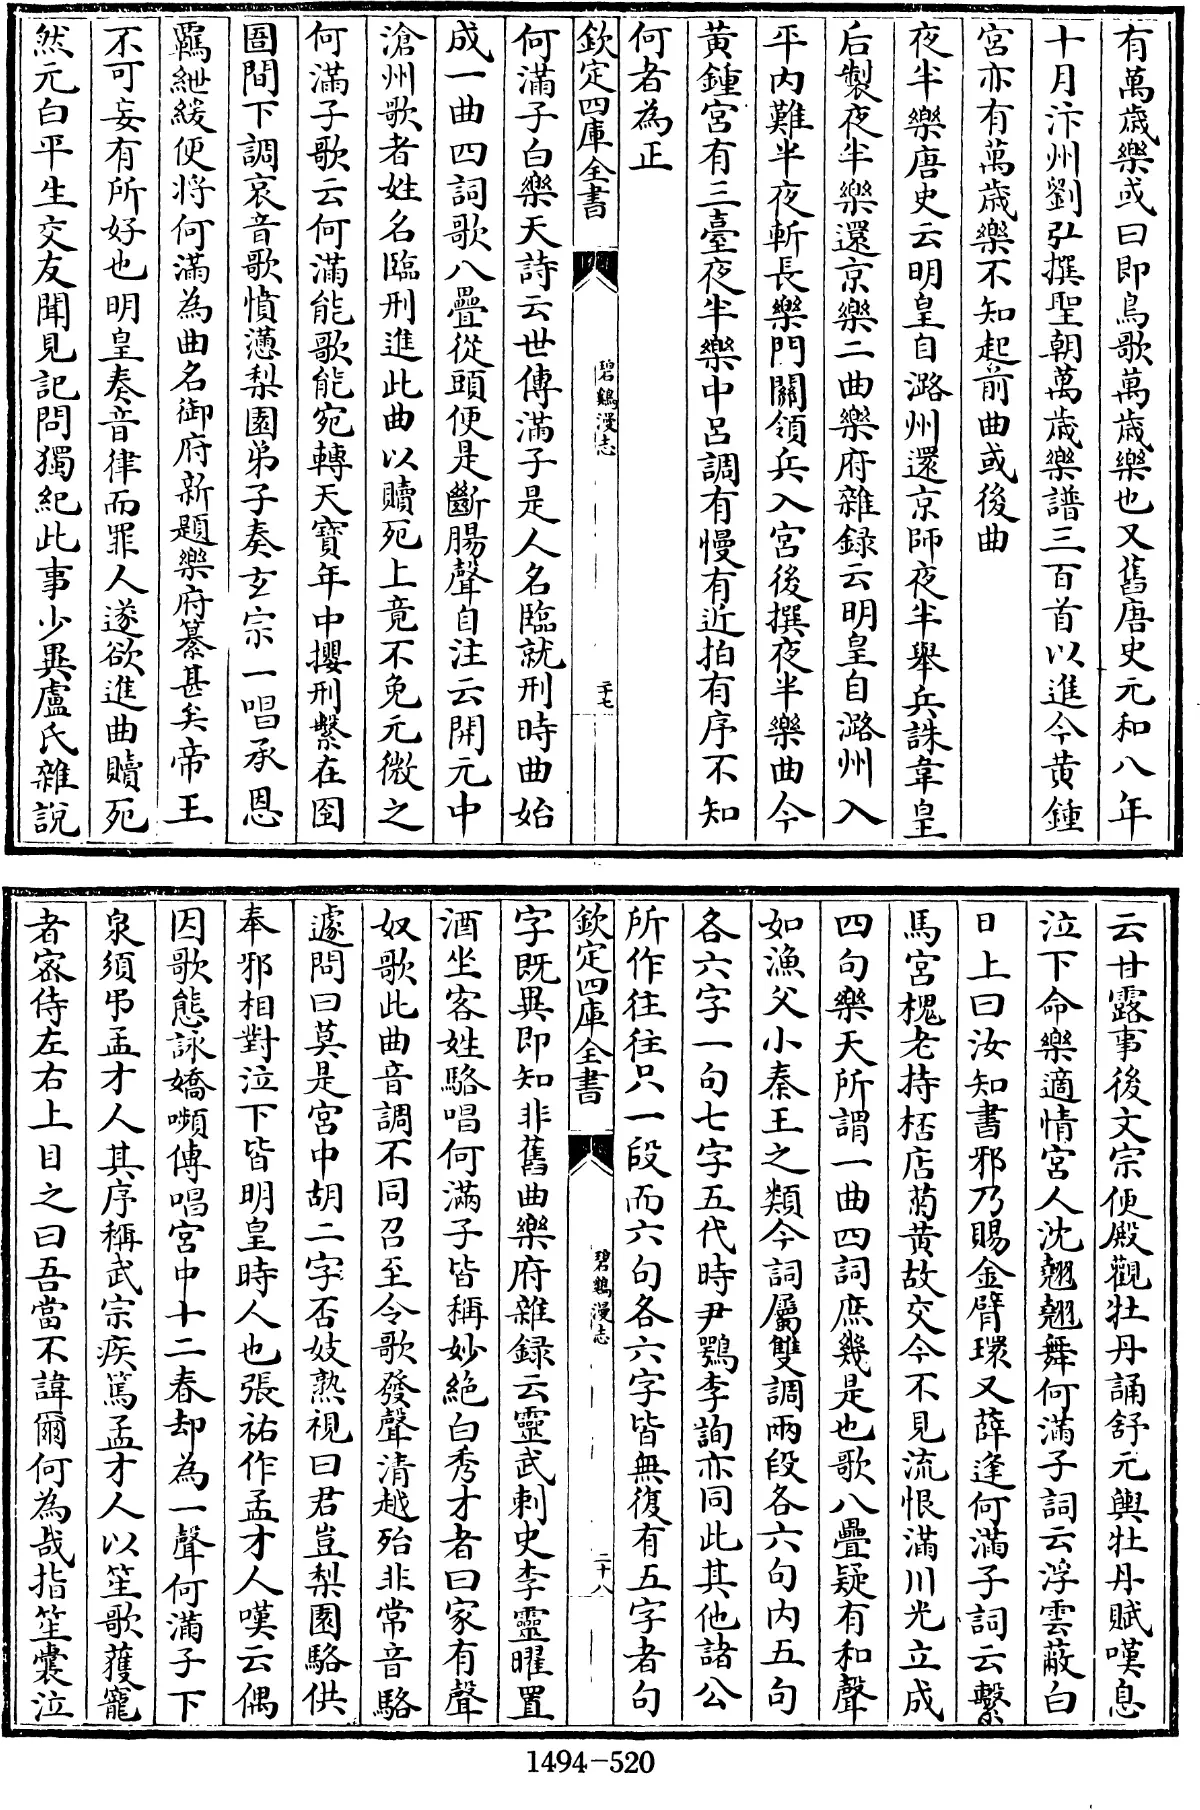 有萬歲樂或曰即鳥歌萬歲樂也又舊唐史元和八年
十月汴州劉弘撰聖朝萬歲樂譜三百首以進今黄鍾
宮亦有萬歲樂不知起前曲或後曲
夜半樂唐史云明皇自潞州還京師夜半舉兵誅韋皇
后製夜半樂還京樂二曲樂府雜録云明皇自潞州入
平内難半夜斬長樂門關領兵入宮後撰夜半樂曲今
黄鍾宮有三臺夜半樂中呂調有慢有近拍有序不知
何者為正
欽定四庫全書
碧鷄漫志
二十七
何滿子白樂天詩云世傳滿子是人名臨就刑時曲始
成一曲四詞歌八疊從頭便是斷腸聲自注云開元中
滄州歌者姓名臨刑進此曲以贖死上竟不免元微之
何滿子歌云何滿能歌能宛轉天寶年中攖刑繫在囹
圄間下調哀音歌憤懣梨園弟子奏玄宗一唱承恩
羈紲緩便將何滿為曲名御府新題樂府纂甚矣帝王
不可妄有所好也明皇奏音律而罪人遂欲進曲贖死
然元白平生交友聞見記問獨紀此事少異盧氏雜說
云甘露事後文宗便殿觀牡丹誦舒元輿牡丹賦嘆息
泣下命樂適情宮人沈翹翹舞何滿子詞云浮雲蔽白
日上曰汝知書邪乃賜金臂環又薛逢何滿子詞云繫
馬宮槐老持桮店菊黄故交今不見流恨滿川光立成
四句樂天所謂一曲四詞庶幾是也歌八疊疑有和聲
如漁父小秦王之類今詞屬雙調兩段各六句内五句
各六字一句七字五代時尹鶚李詢亦同此其他諸公
所作往往只一段而六句各六字皆無復有五字者句
欽定四庫全書
碧鷄漫志
二十八
字既異即知非舊曲樂府雜録云靈武刺史李靈曜置
酒坐客姓駱唱何滿子皆稱妙絶白秀才者曰家有聲
奴歌此曲音調不同召至令歌發聲清越殆非常音駱
遽問曰莫是宮中胡二字否妓熟視曰君豈梨園駱供
奉邪相對泣下皆明皇時人也張祐作孟才人嘆云偶
因歌態詠嬌嚬傳唱宮中十二春却為一聲何滿子下
泉須弔孟才人其序稱武宗疾篤孟才人以笙歌獲寵
者密侍左右上目之曰吾當不諱爾何為哉指笙囊泣
1494-520